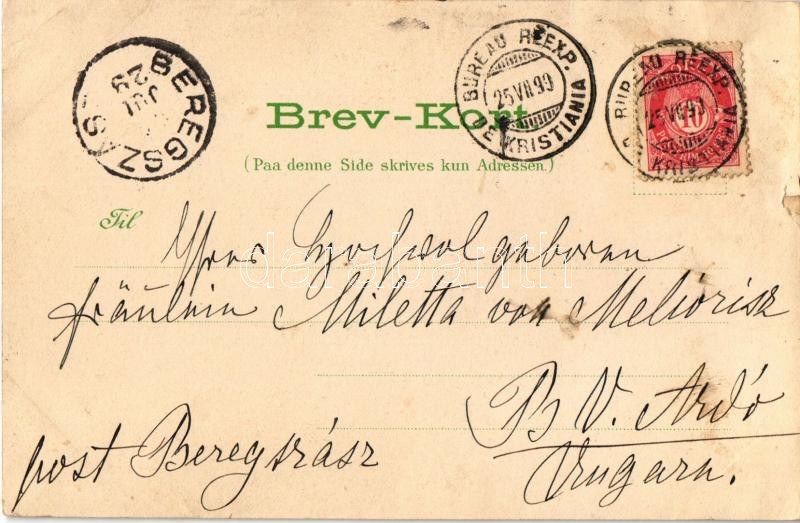 BEREGSZÁSZ
JUL
29
BUREAU REEXP.
25 VII 99
DE KRISTIANIA
BUREAU REEXP.
25 VII 99
KRISTIANIA
10
Brev-Kort
(Paa denne Side skrives kun Adressen.)
Til
Hochwolgeboren
darabanth
fräulein Miletta von Meliorisz
B V. Ardó
post Beregszász
Ungarn.